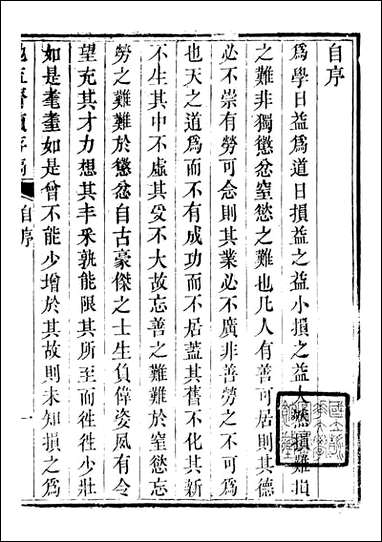 自序
為學日益為道日損益之益小損之益大然損難損
之難非獨懲忿窒慾之難也凡人有善可居則其德
必不崇有勞可念則其業必不廣非善勞之不可爲
也天之道爲而不有成功而不居蓋其舊不化其新
不生其中不虛其受不大故忘善之難難於窒慾忘
勞之難難於懲忿自古豪傑之士生負偉姿夙有令
望充其才力想其丰采孰能限其所至而徃徃少壯
如是耄耋如是曾不能少增於其故則未知損之爲
自序
一